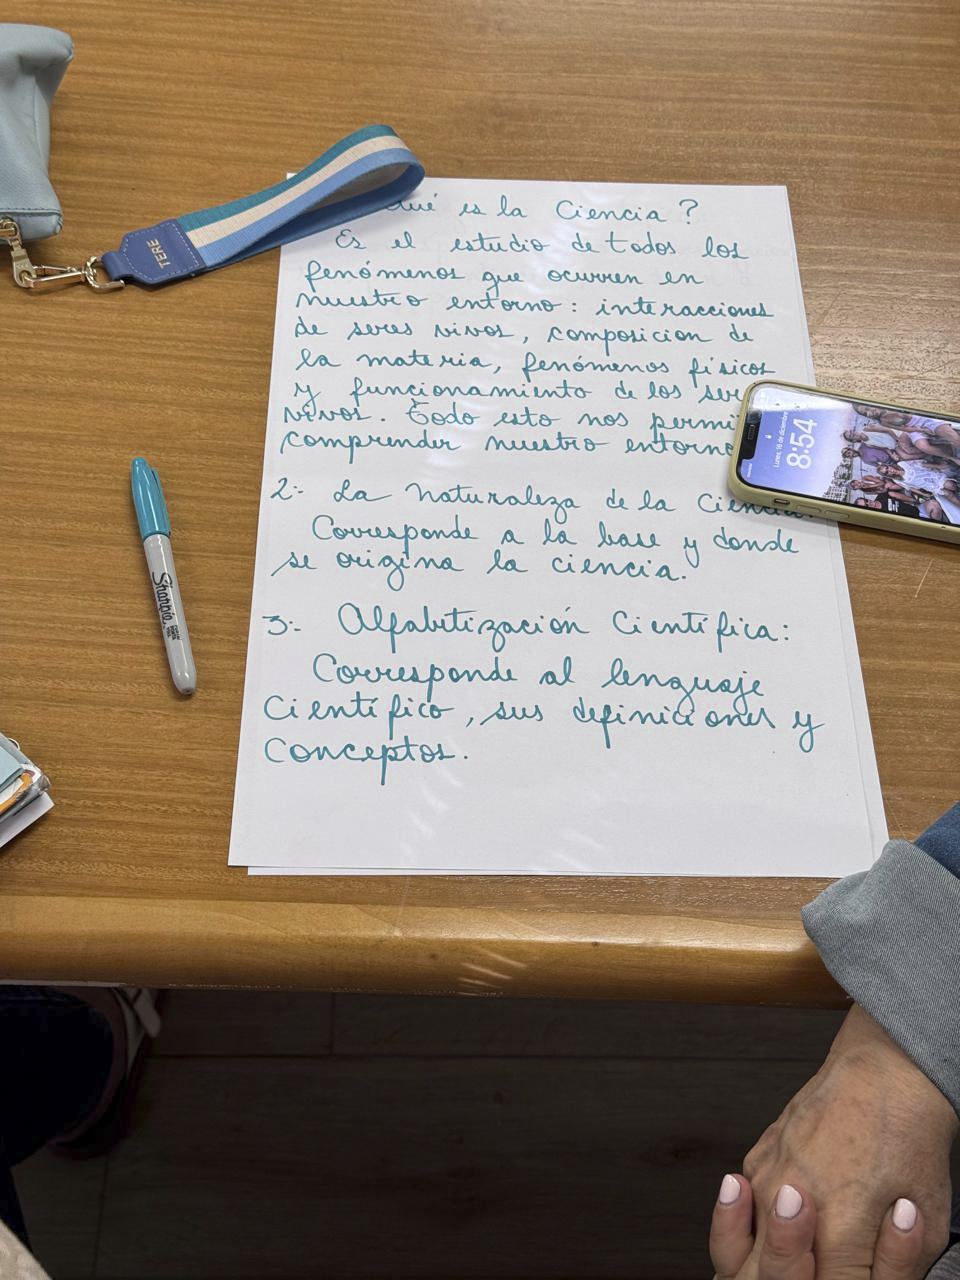 Qué es la Ciencia?
Es el estudio de todos los
fenómenos que ocurren en
nuestro entorno: interacciones
de seres vivos, composicion de
la materia, fenómenos físicos
y funcionamiento de los ser
vivos. Todo esto nos permi
comprender nuestro entorno
2.- La Naturaleza de la Ciencia.
Corresponde a la base y donde
se origina la ciencia.
3.- Alfabetización Científica:
Corresponde al lenguaje
Científico, sus definiciones y
Conceptos.
TERE
Sharpie
Lunes, 16 de diciembre
8:54